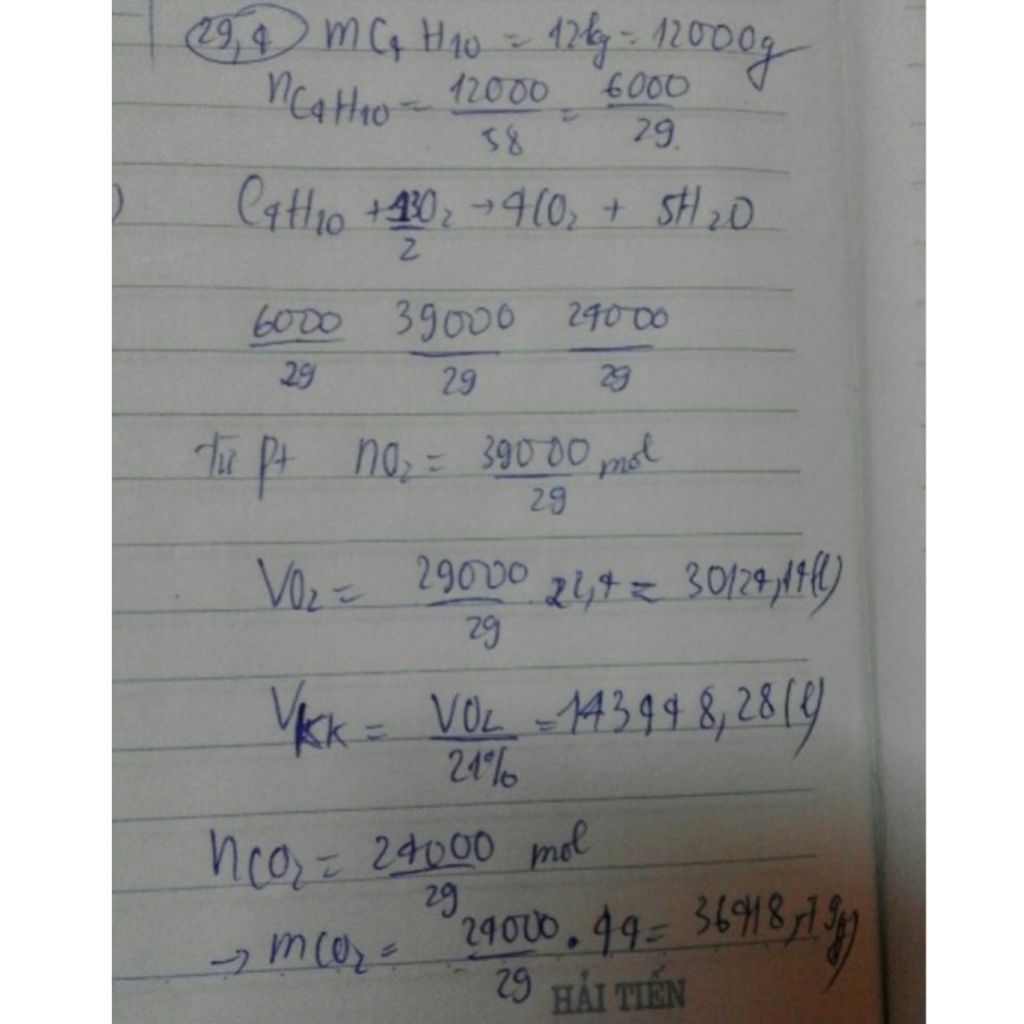 29,4 mC4H10 = 12kg = 12000g
nC4H10 = 12000/58 = 6000/29
) C4H10 + 13/2O2 → 4CO2 + 5H2O
6000/29 39000/29 24000/29
Từ pt nO2 = 39000/29 mol
VO2 = 29000/29 22,4 = 30124,14(l)
Vkk = VO2/21% = 143448,28(l)
nCO2 = 24000/29 mol
→ mCO2 = 24000/29 . 44 = 36413,79g)
HẢI TIẾN